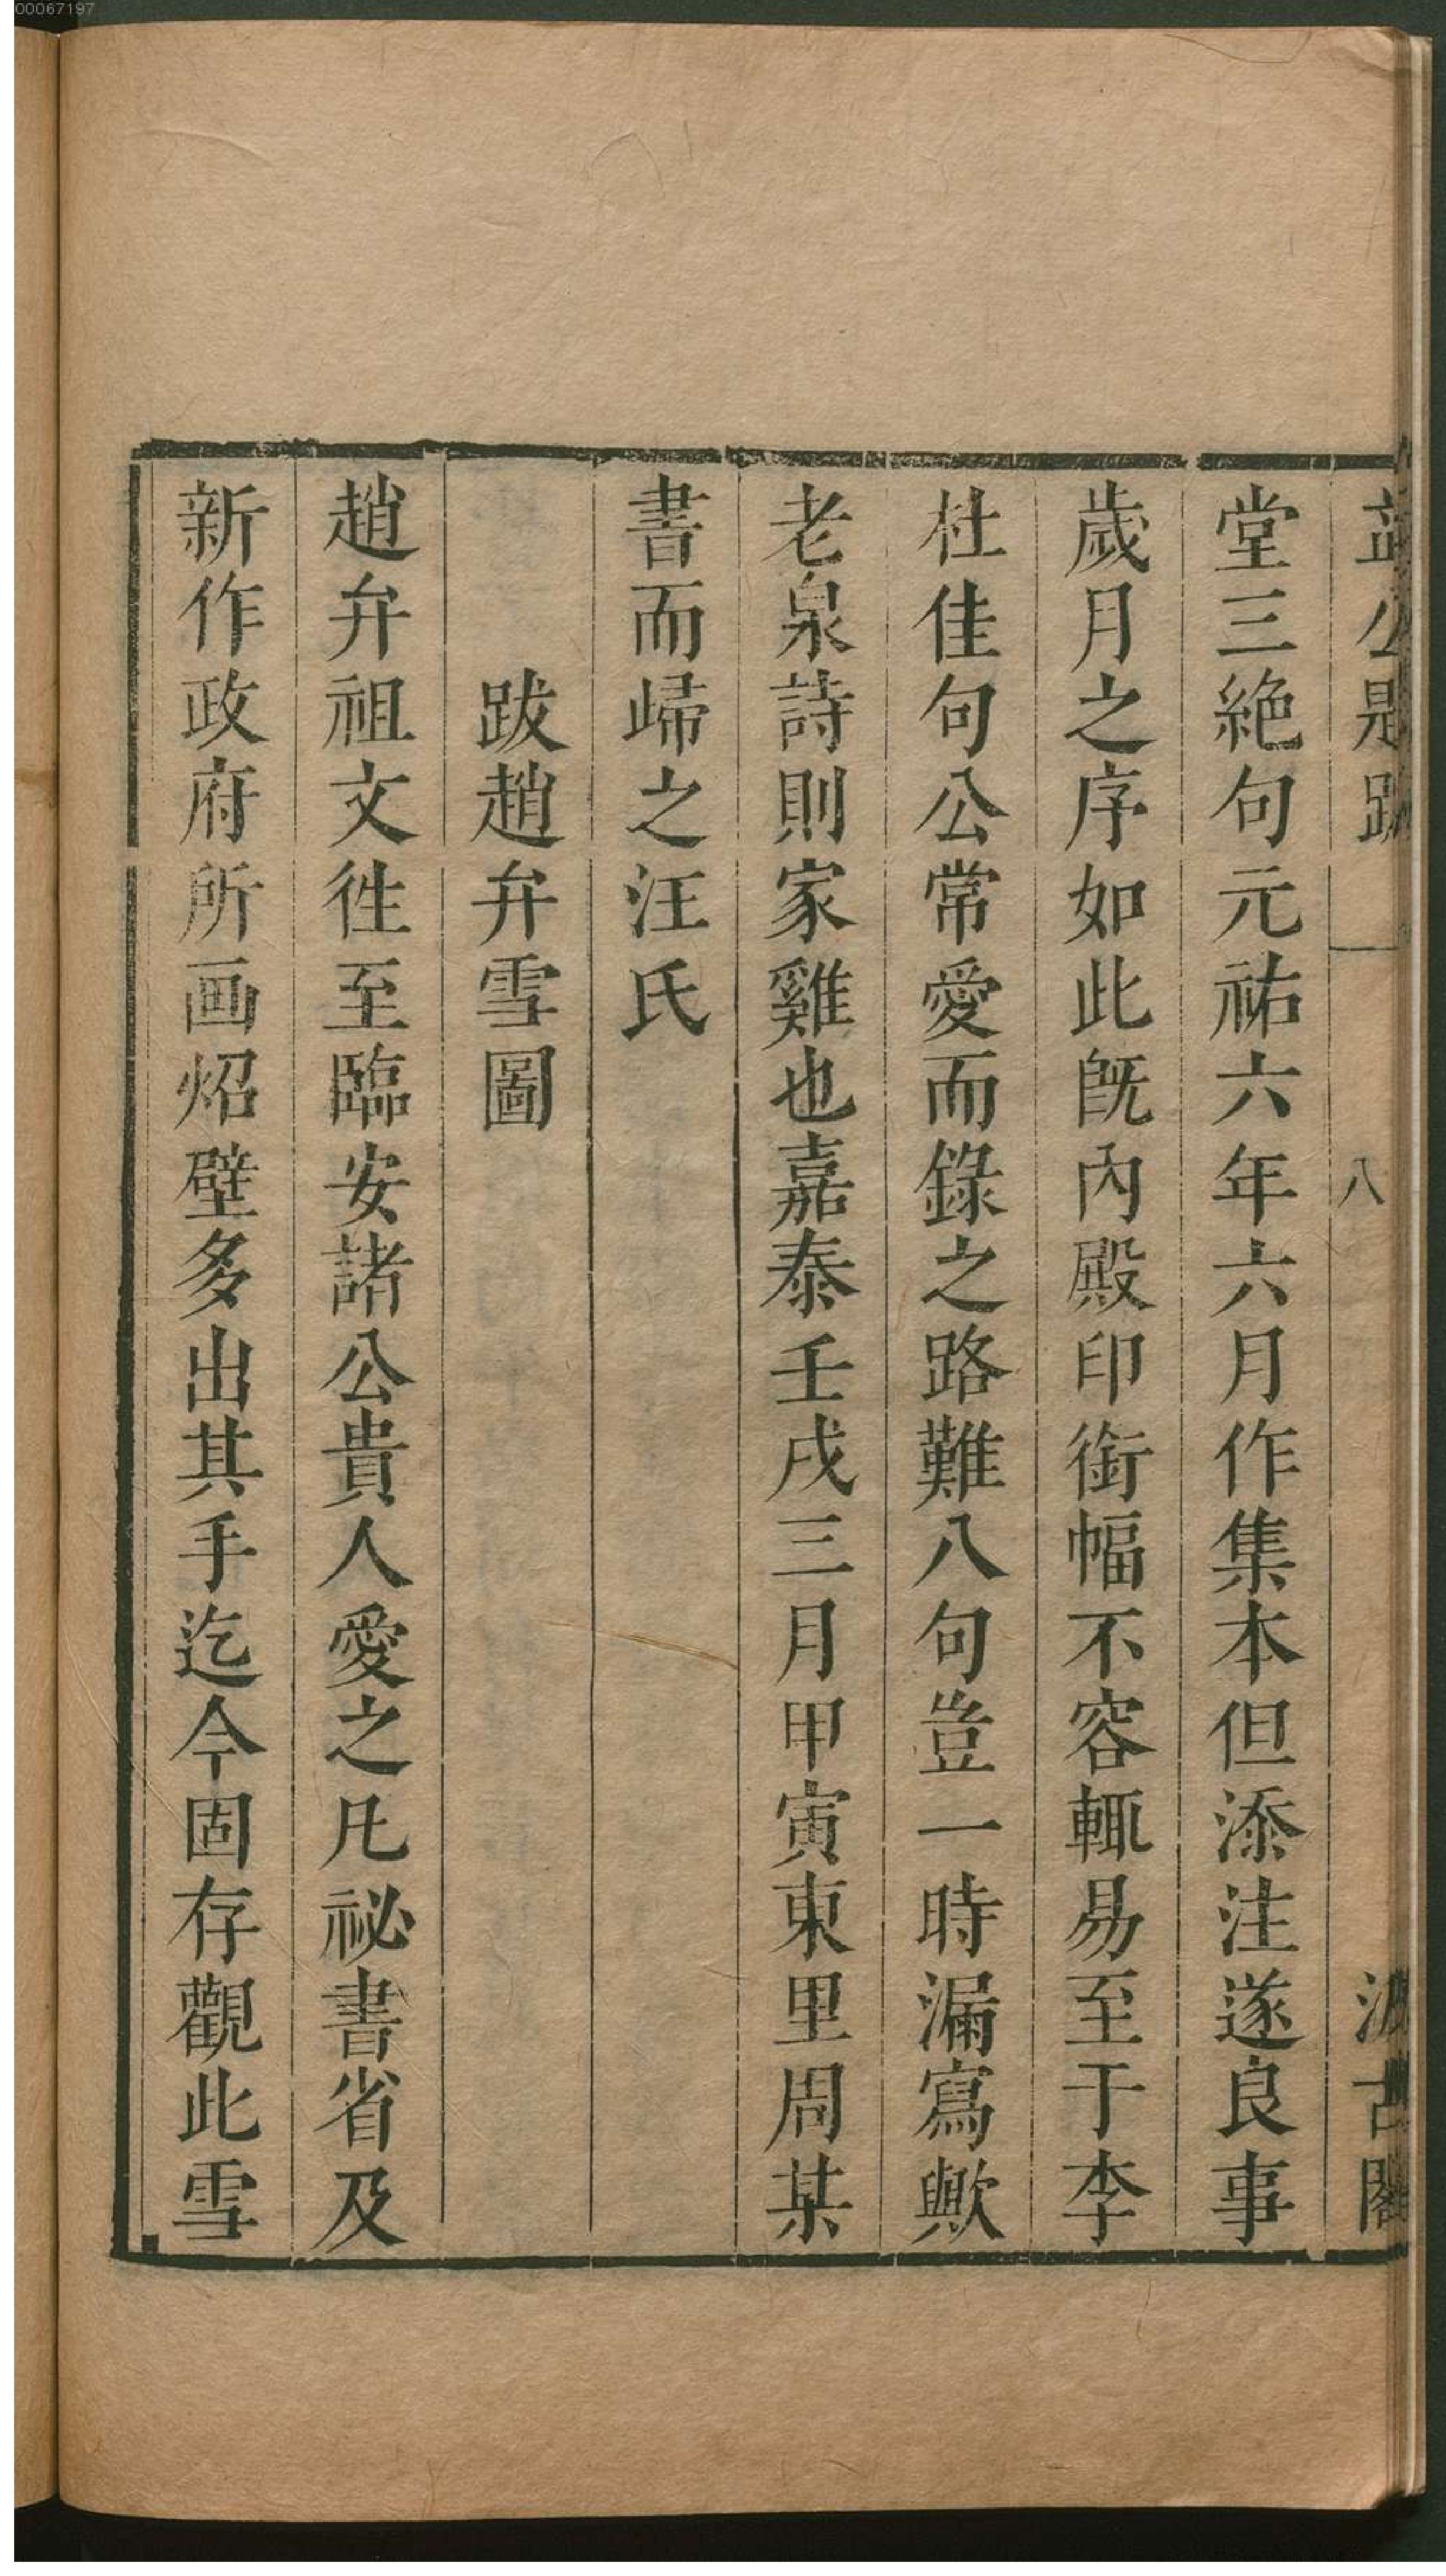 00067197
益公題跋 八 汲古閣
堂三絶句元祐六年六月作集本但添注遂良事
歲月之序如此旣內殿印銜幅不容輒易至于李
杜佳句公常愛而錄之路難八句豈一時漏寫歟
老泉詩則家雞也嘉泰壬戌三月甲寅東里周某
書而歸之汪氏
跋趙弁雪圖
趙弁祖文徃至臨安諸公貴人愛之凡祕書省及
新作政府所画炤壁多出其手迄今固存觀此雪